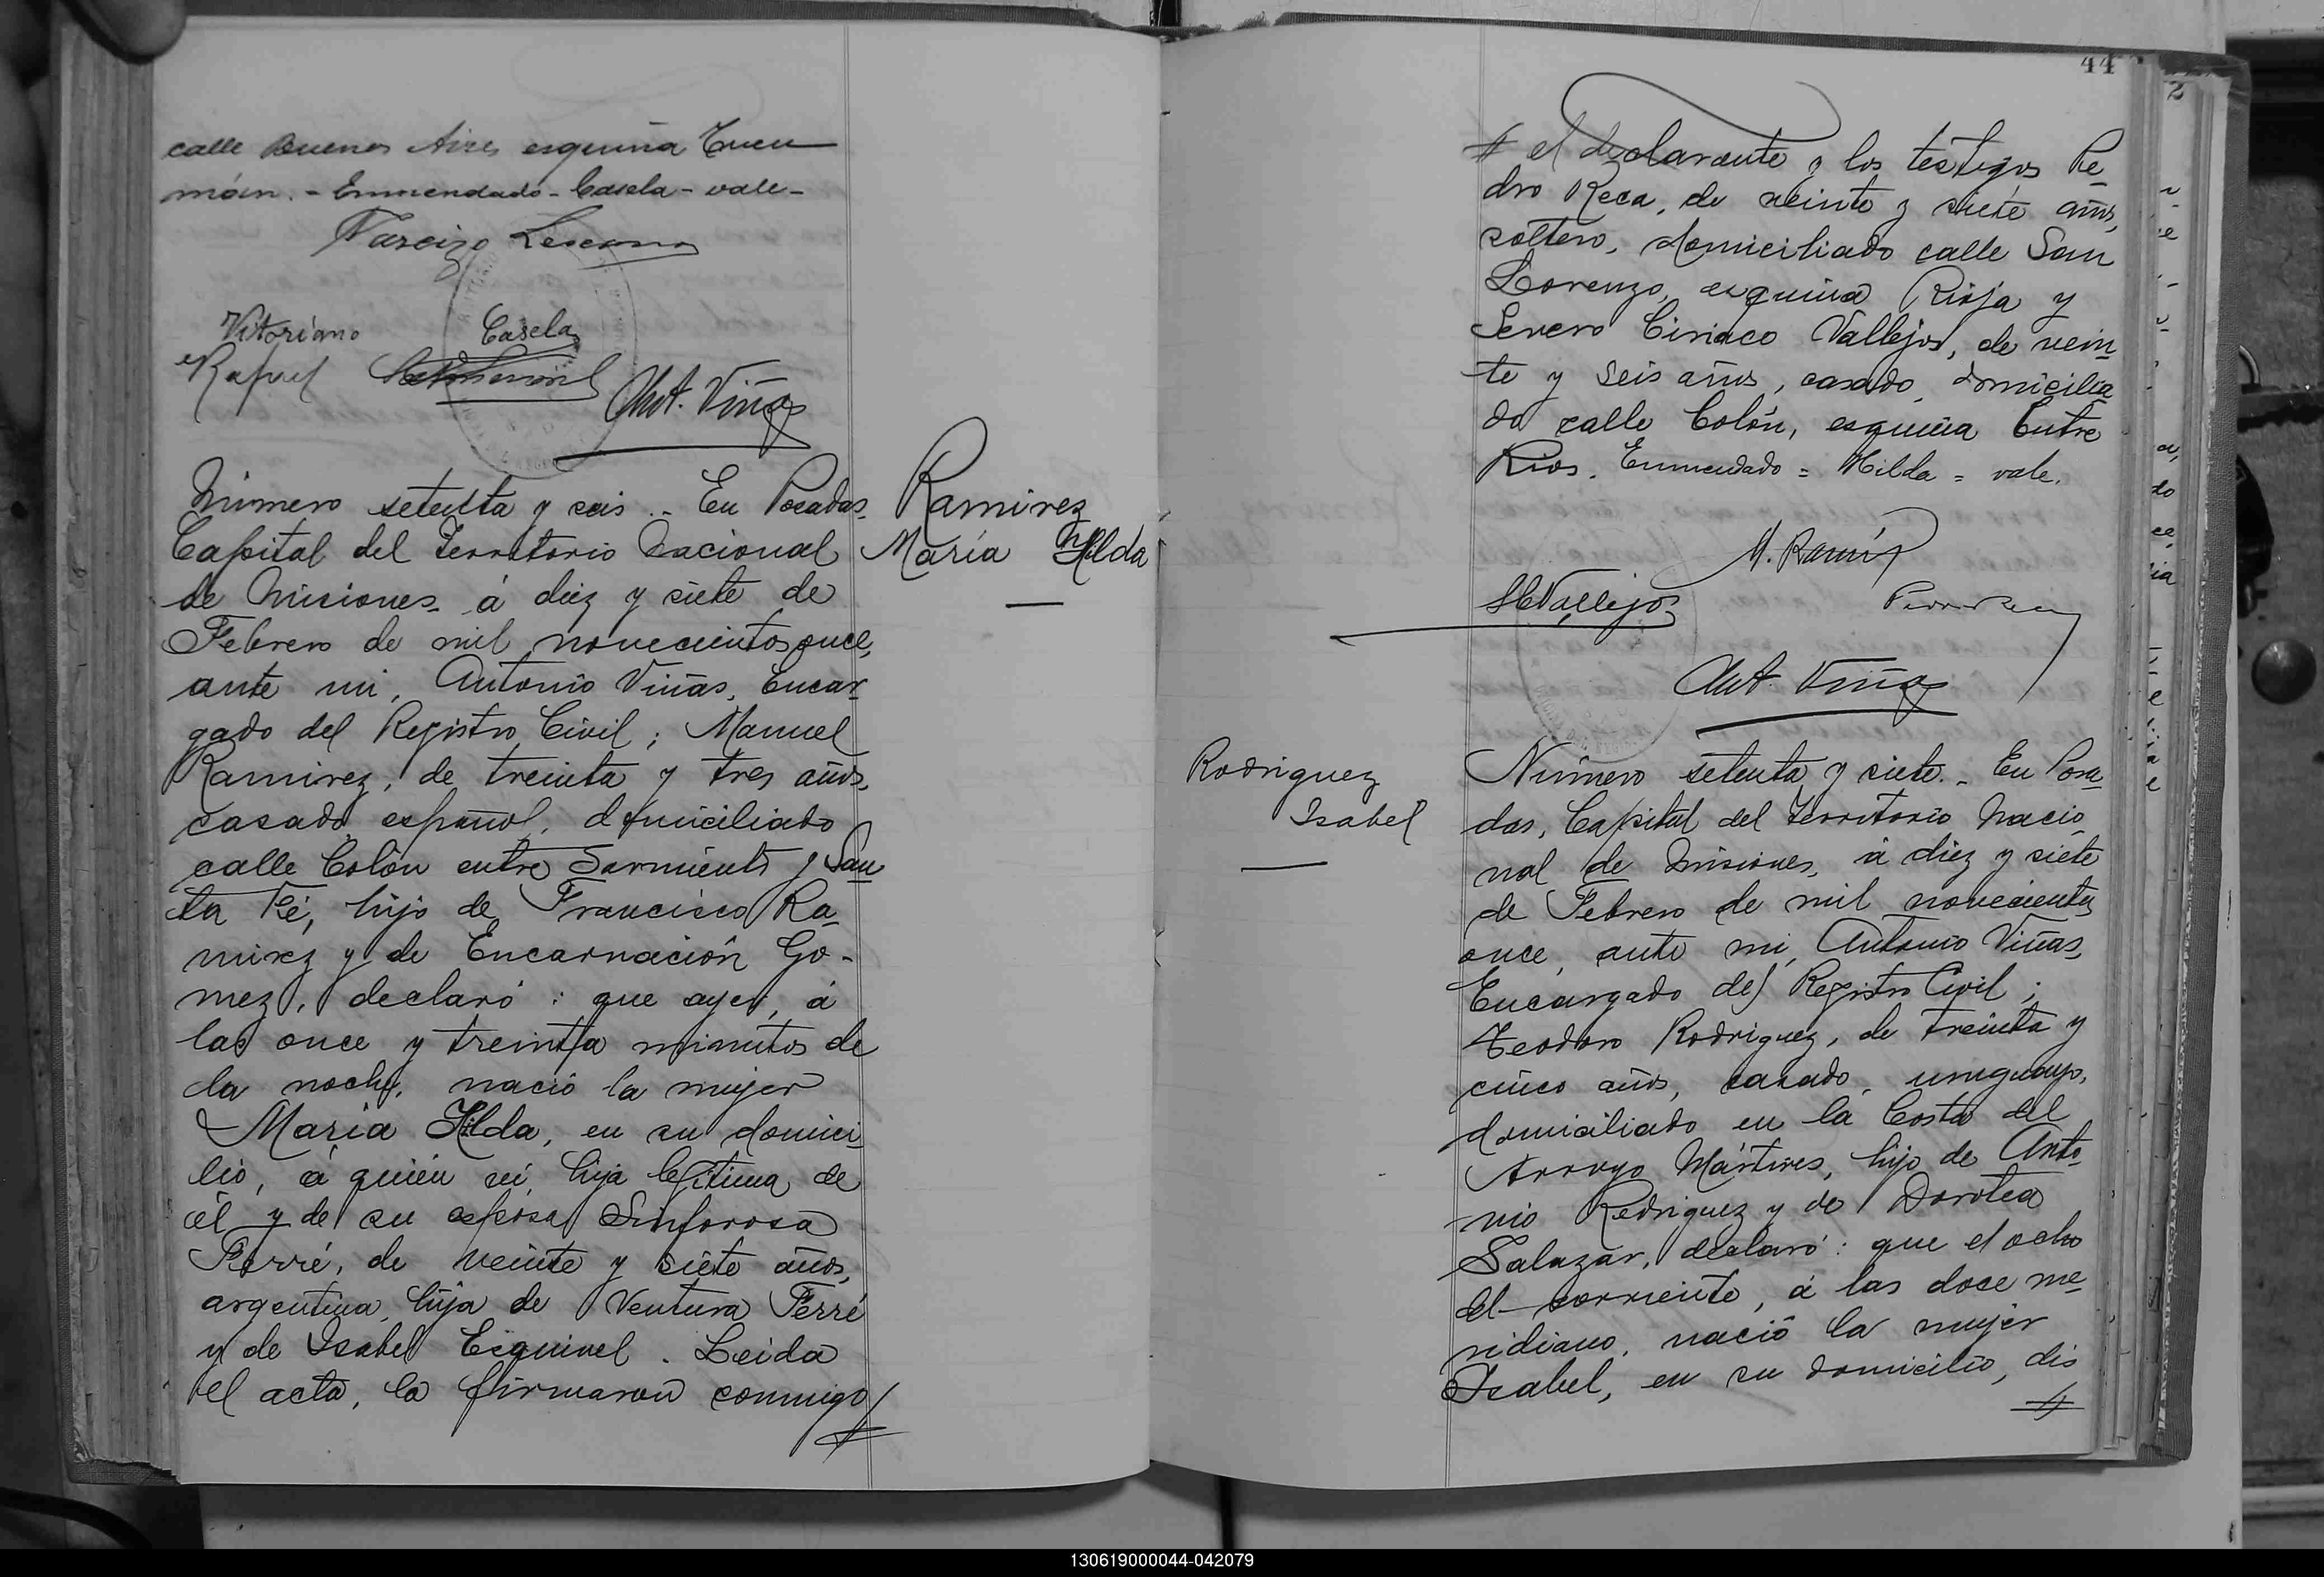 calle Buenos Aires esquina Tucu
mán. - Enmendado - Casela - vale -
Narcizo Lescano
Vitoriano Casela
Rafael
Ant. Viñas
Número setenta y seis .. En Posadas,
Capital del Territorio Nacional
de Misiones, á diez y siete de
Febrero de mil novecientos once,
ante mi, Antonio Viñas, Encar
gado del Registro Civil; Manuel
Ramirez, de treinta y tres años,
casado, español, domiciliado
calle Colón entre Sarmiento y San
ta Fé, hijo de Francisco Ra
mirez y de Encarnación Go-
mez, declaró: que ayer, á
las once y treinta minutos de
la noche, nació la mujer
Maria Hilda, en su domici
lio, á quien vi, hija lejitima de
él y de su esposa Sinforosa
Ferré, de veinte y siete años,
argentina, hija de Ventura Ferré
y de Isabel Esquivel. Leida
el acta, la firmaron conmigo
Ramirez
María Hilda
44
2
el declarante y los testigos Pe
dro Reca, de veinte y siete años,
soltero, domiciliado calle San
Lorenzo, esquina Rioja y
Severo Ciriaco Vallejos, de vein
te y seis años, casado, domicilia
do calle Colón, esquina Entre
Rios. Enmendado = Hilda = vale.
M. Ramirez
SCVallejos
Pedro Reca
Ant. Viñas
Rodriguez
Isabel
Número setenta y siete.- En Posa
das, Capital del Territorio Nacio
nal de Misiones, á diez y siete
de Febrero de mil novecientos
once, ante mi, Antonio Viñas,
Encargado del Registro Civil;
Teodoro Rodriguez, de treinta y
cinco años, casado, uruguayo,
domiciliado en la Costa del
Arroyo Mártires, hijo de Anto
nio Rodriguez y de Dorotea
Salazar, declaró: que el ocho
del corriente, á las doce me
ridiano, nació la mujer
Isabel, en su domicilio, dis
130619000044-042079